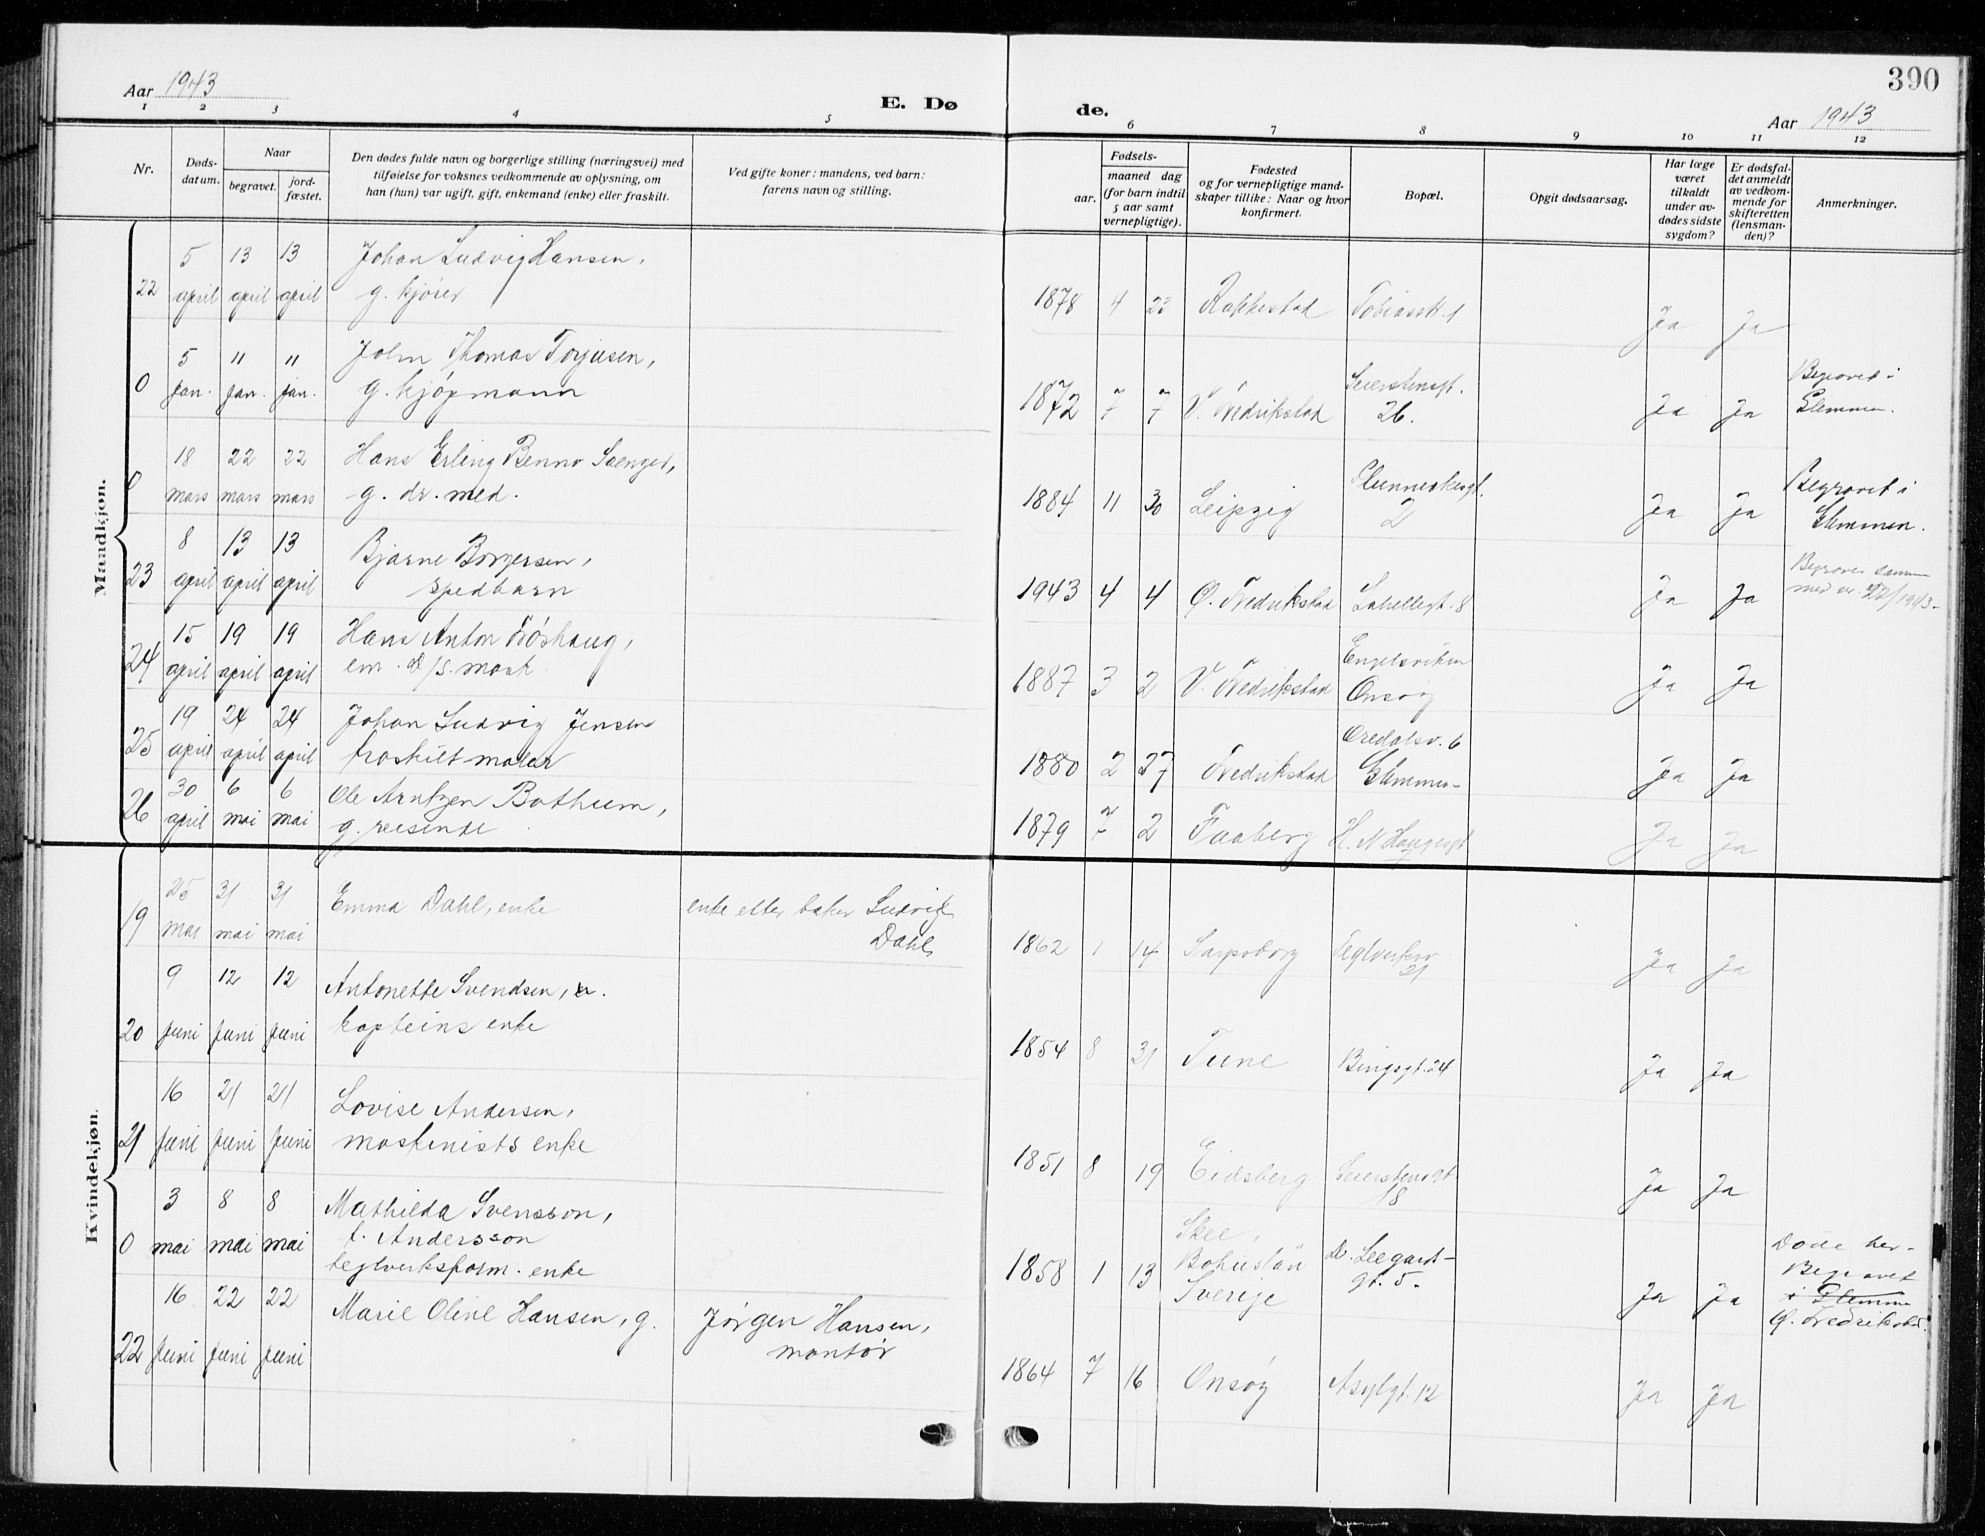 390
Aar 1943
E. Dø
de.
Aar 1943
1 2 3 4 5 6 7 8 9 10 11 12
Nr.
Døds-
datum.
Naar
begravet.
jord-
fæstet.
Den dødes fulde navn og borgerlige stilling (næringsvei) med
tilføielse for voksnes vedkommende av oplysning, om
han (hun) var ugift, gift, enkemand (enke) eller fraskilt.
Ved gifte koner: mandens, ved barn:
farens navn og stilling.
Fødsels-
aar.
maaned dag
(for barn indtil
5 aar samt
vernepligtige).
Fødested
og for vernepligtige mand-
skaper tillike: Naar og hvor
konfirmert.
Bopæl.
Opgit dødsaarsag.
Har læge
været
tilkaldt
under av-
dødes sidste
sygdom?
Er dødsfal-
det anmeldt
av vedkom-
mende for
skifteretten
(lensman-
den)?
Anmerkninger.
Mandkjøn.
5 13 13 Johan Ludvig Hansen,
22 april april april g. kjører
1878 4 23 Rakkestad Tobiasst. 1 Ja Ja
5 " " John Thomas Torjusen,
0 jan. jan. jan. g. kjøpmann
1872 7 7 V. Fredrikstad Seierstensgt. 26. Ja Ja Begravet i
Glemmen.
18 22 22 Hans Erling Benno Saenger,
0 mars mars mars g. dr. med.
1884 11 30 Leipzig 2 Ja Ja Begravet i
Glemmen.
8 13 13 Bjarne Borgersen,
23 april april april spedbarn
1943 4 4 Ø. Fredrikstad Labellegt. 8 Ja Ja Begravet sammen
med nr. 22/1943.
15 19 19 Hans Anton Røshaug,
24 april april april em. d/s. mask
1887 3 2 V. Fredrikstad Engelsviken
Onsøy Ja Ja
19 24 24 Johan Ludvig Jensen
25 april april april fraskilt maler
1880 2 27 Fredrikstad Oredalsv. 6
Glemmen Ja Ja
30 6 6 Ole Arntzen Bothum,
26 april mai mai g. reisende
1879 7 2 Faaberg H. N. Haugesgt 7 Ja Ja
Kvindekjøn.
25 31 31 Emma Dahl, enke enke etter baker Ludvig
19 mai mai mai Dahl
1862 1 14 Sarpsborg Teglverksv.
21 Ja Ja
9 12 12 Antonette Svendsen,
20 juni juni juni kapteins enke
1854 8 31 Tune Bingsgt. 24 Ja Ja
16 21 21 Lovise Andersen,
21 juni juni juni maskinists enke
1851 8 19 Eidsberg Seierstensgt.
18 Ja Ja
3 8 8 Mathilda Svensson,
0 mai mai mai f. Andersson
teglverksform. enke
1858 1 13 Skee,
Bohuslän
Sverige L. Seegard-
gt. 5. Ja Ja Døde her.
Begravet
i Glemme
Ø. Fredrikstad.
16 22 22 Marie Oline Hansen, g. Jørgen Hansen,
22 juni juni juni montør
1864 7 16 Onsøy Asylgt. 12 Ja Ja